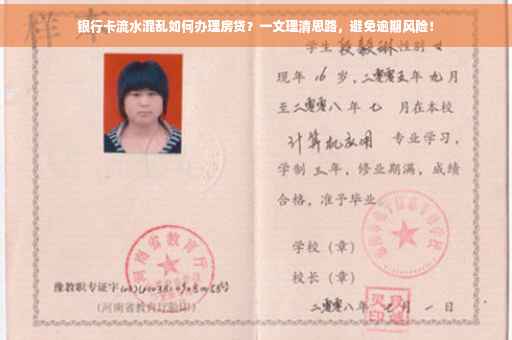 银行卡流水混乱如何办理房贷？一文理清思路，避免逾期风险！
学生段毅琳性别女
现年 16 岁，二零零五年九月
至二零零八年七 月在本校
计算机应用 专业学习，
学制三年，修业期满，成绩
合格，准予毕业。
学校（章）
校长（章）
二零零八年七月一日
河南省教育厅
豫教职专证字
（河南省教育厅验印）